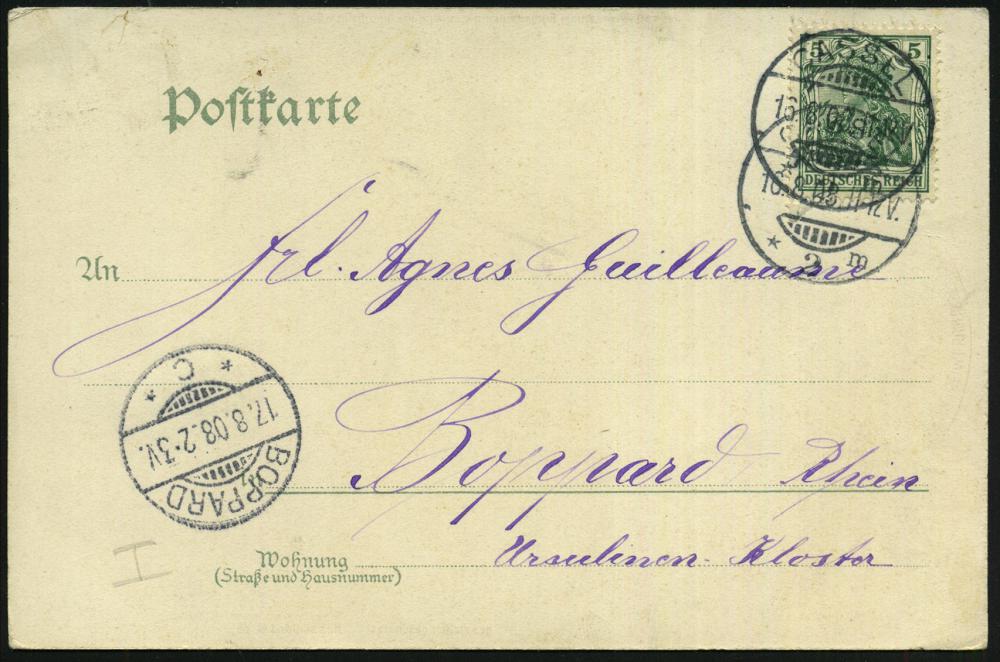 Postkarte
5 5
DEUTSCHES REICH
CASSEL
16.8.08.11-12V.
* 2 m
An Frl. Agnes Guilleaume
* C *
17.8.08.2-3V.
BOPPARD
Boppard Rhein
Wohnung
(Straße und Hausnummer)
Ursulinen-Kloster
I